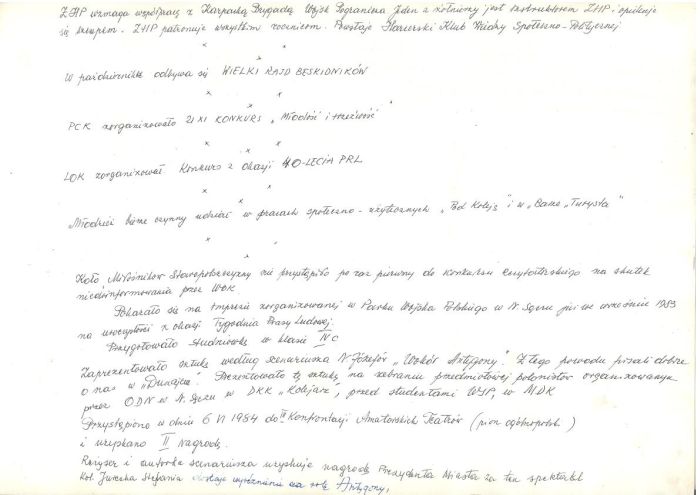 ZHP wzmaga współpracę z Karpacką Brygadą Wojsk Pogranicza jeden z żołnierzy jest instruktorem ZHP i opiekuje
się szczepem. ZHP patronuje wszystkim rocznicom. Powstaje Harcerski Klub Wiedzy Społeczno-Politycznej
x x
x
W październiku odbywa się WIELKI RAJD BESKIDNIKÓW
x x
x
PCK zorganizowało 21 XI KONKURS „Młodość i trzeźwość"
x x
x
LOK zorganizował Konkurs z okazji 40-LECIA PRL
x x
x
Młodzież bierze czynny udział w pracach społeczno-użytecznych „Pod Koleją" i w „Barze „Turysta"
x x
x
Koło Miłośników Staropolszczyzny nie przystąpiło po raz pierwszy do konkursu czytelniczego na skutek
niedoinformowania przez WOK
Pokazało się na imprezie zorganizowanej w Parku Wojska Polskiego w N. Sączu już we wrześniu 1983
na uroczystości z okazji Tygodnia Prasy Ludowej.
Przygotowało studniówkę w klasie IV c
Zaprezentowało sztukę według scenariusza N. Józefów „Wokół Antygony". Z tego powodu pisali dobrze
o nas w „Dunajcu". Prezentowało tę sztukę na zebraniu przedmiotowej polonistów organizowanym
przez ODN w N. Sączu w DKK „Kolejarz", przed studentami WSP, w MDK
Przystąpiono w dniu 6 VI 1984 do II Konfrontacji Amatorskich Teatrów (pion ogólnopolski)
i uzyskano II Nagrodę.
Reżyser i autorka scenariusza uzyskuje nagrodę Prezydenta Miasta za ten spektakl
Kol. Jurecka Stefania dostaje wyróżnienie za rolę Antygony.